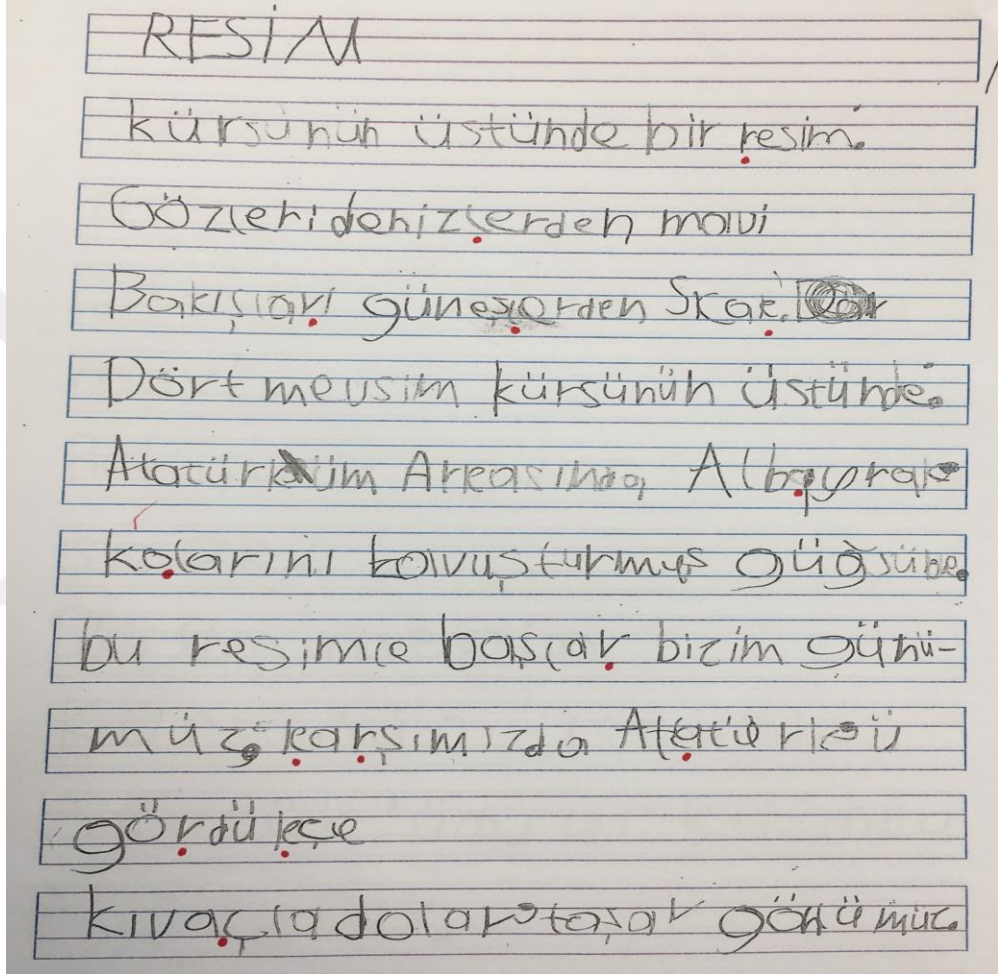 RESİM
kürsünün üstünde bir resim.
Gözleri denizlerden mavi
Bakışları güneşlerden Skak.
Dört mevsim kürsünün üstünde.
Atatürküm Arkasında Albayrak
kolarını kavuşturmuş güğsüne.
bu resimle başlar bizim günü-
müz. karşımızda Atatürkü
gördükçe
kıvaçla dolar taşar gönümüz.